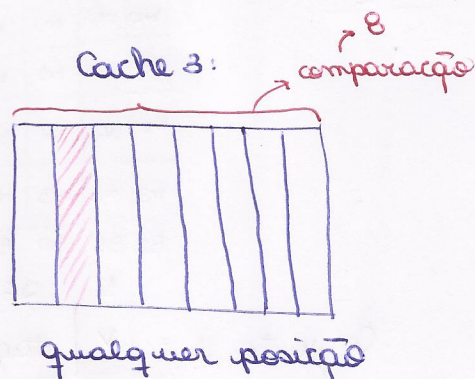 8
Cache 3:
comparação
qualquer posição